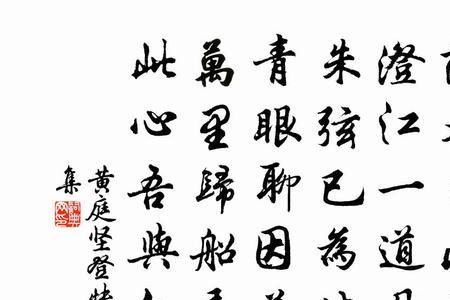 澄江一道
朱弦已為
青眼聊因
萬里歸船
此心吾與
黄庭坚登
集